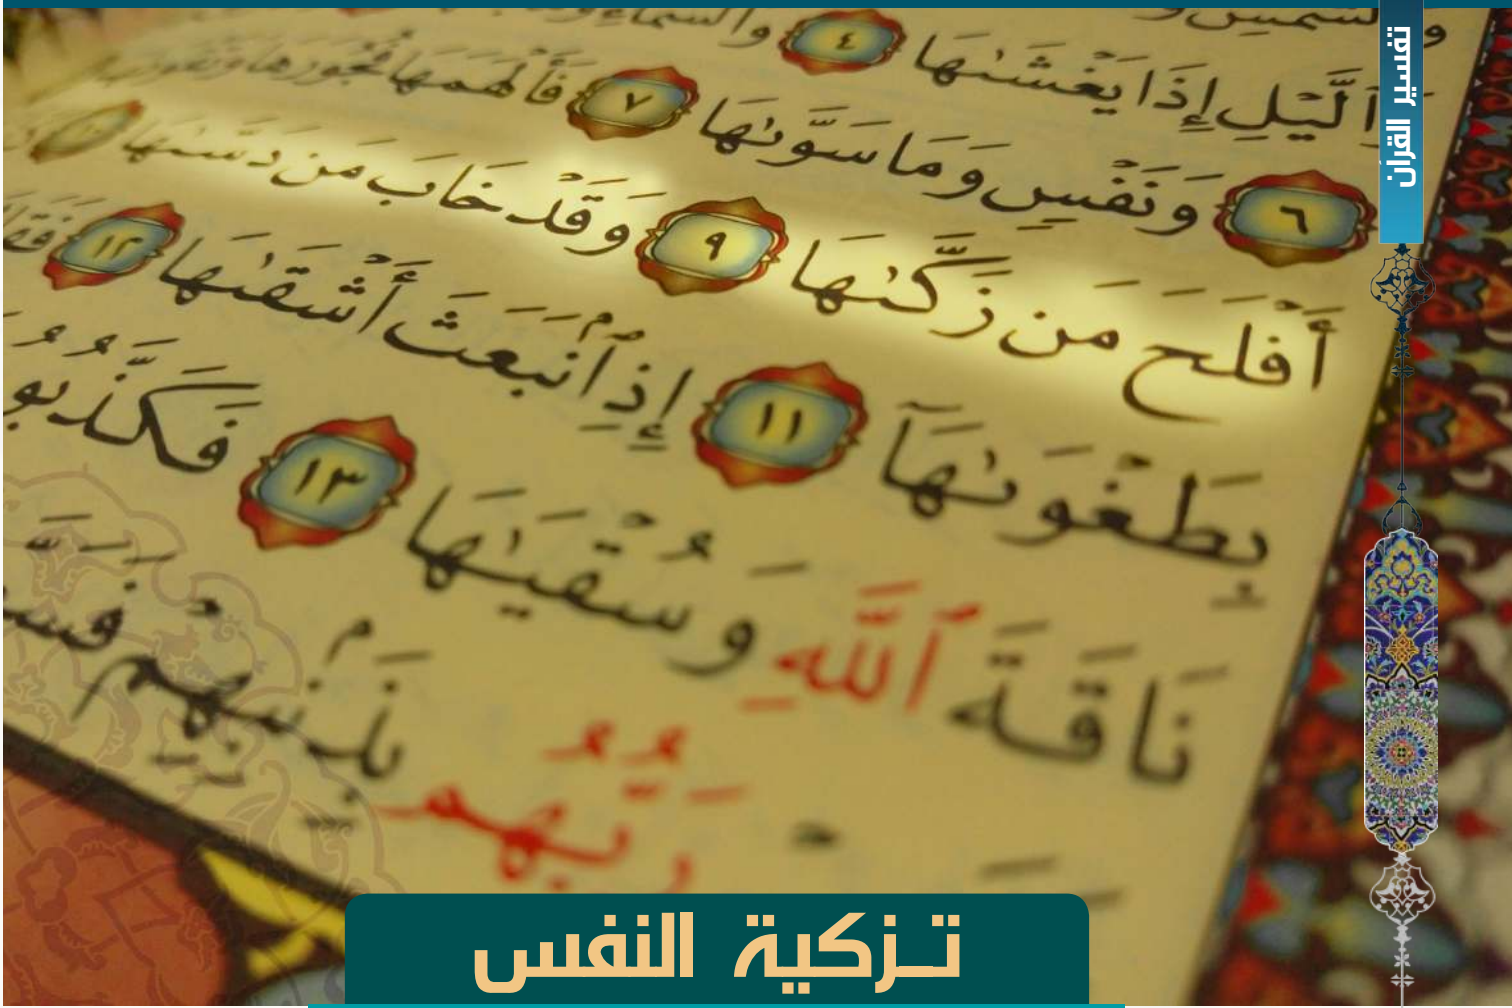 تفسير القرآن
ٱلَّيْلِ إِذَا يَغْشَىٰهَا ٤ وَالسَّمَاءِ
٦ وَنَفْسٍ وَمَا سَوَّىٰهَا ٧ فَأَلْهَمَهَا فُجُورَهَا
أَفْلَحَ مَن زَكَّىٰهَا ٩ وَقَدْ خَابَ مَن دَسَّىٰهَا ١٠
بِطَغْوَىٰهَآ ١١ إِذِ ٱنۢبَعَثَ أَشْقَىٰهَا ١٢
نَاقَةَ ٱللَّهِ وَسُقْيَٰهَا ١٣ فَكَذَّبُو
رَبُّهُم بِذَنۢبِهِمْ
تـزكية النفس